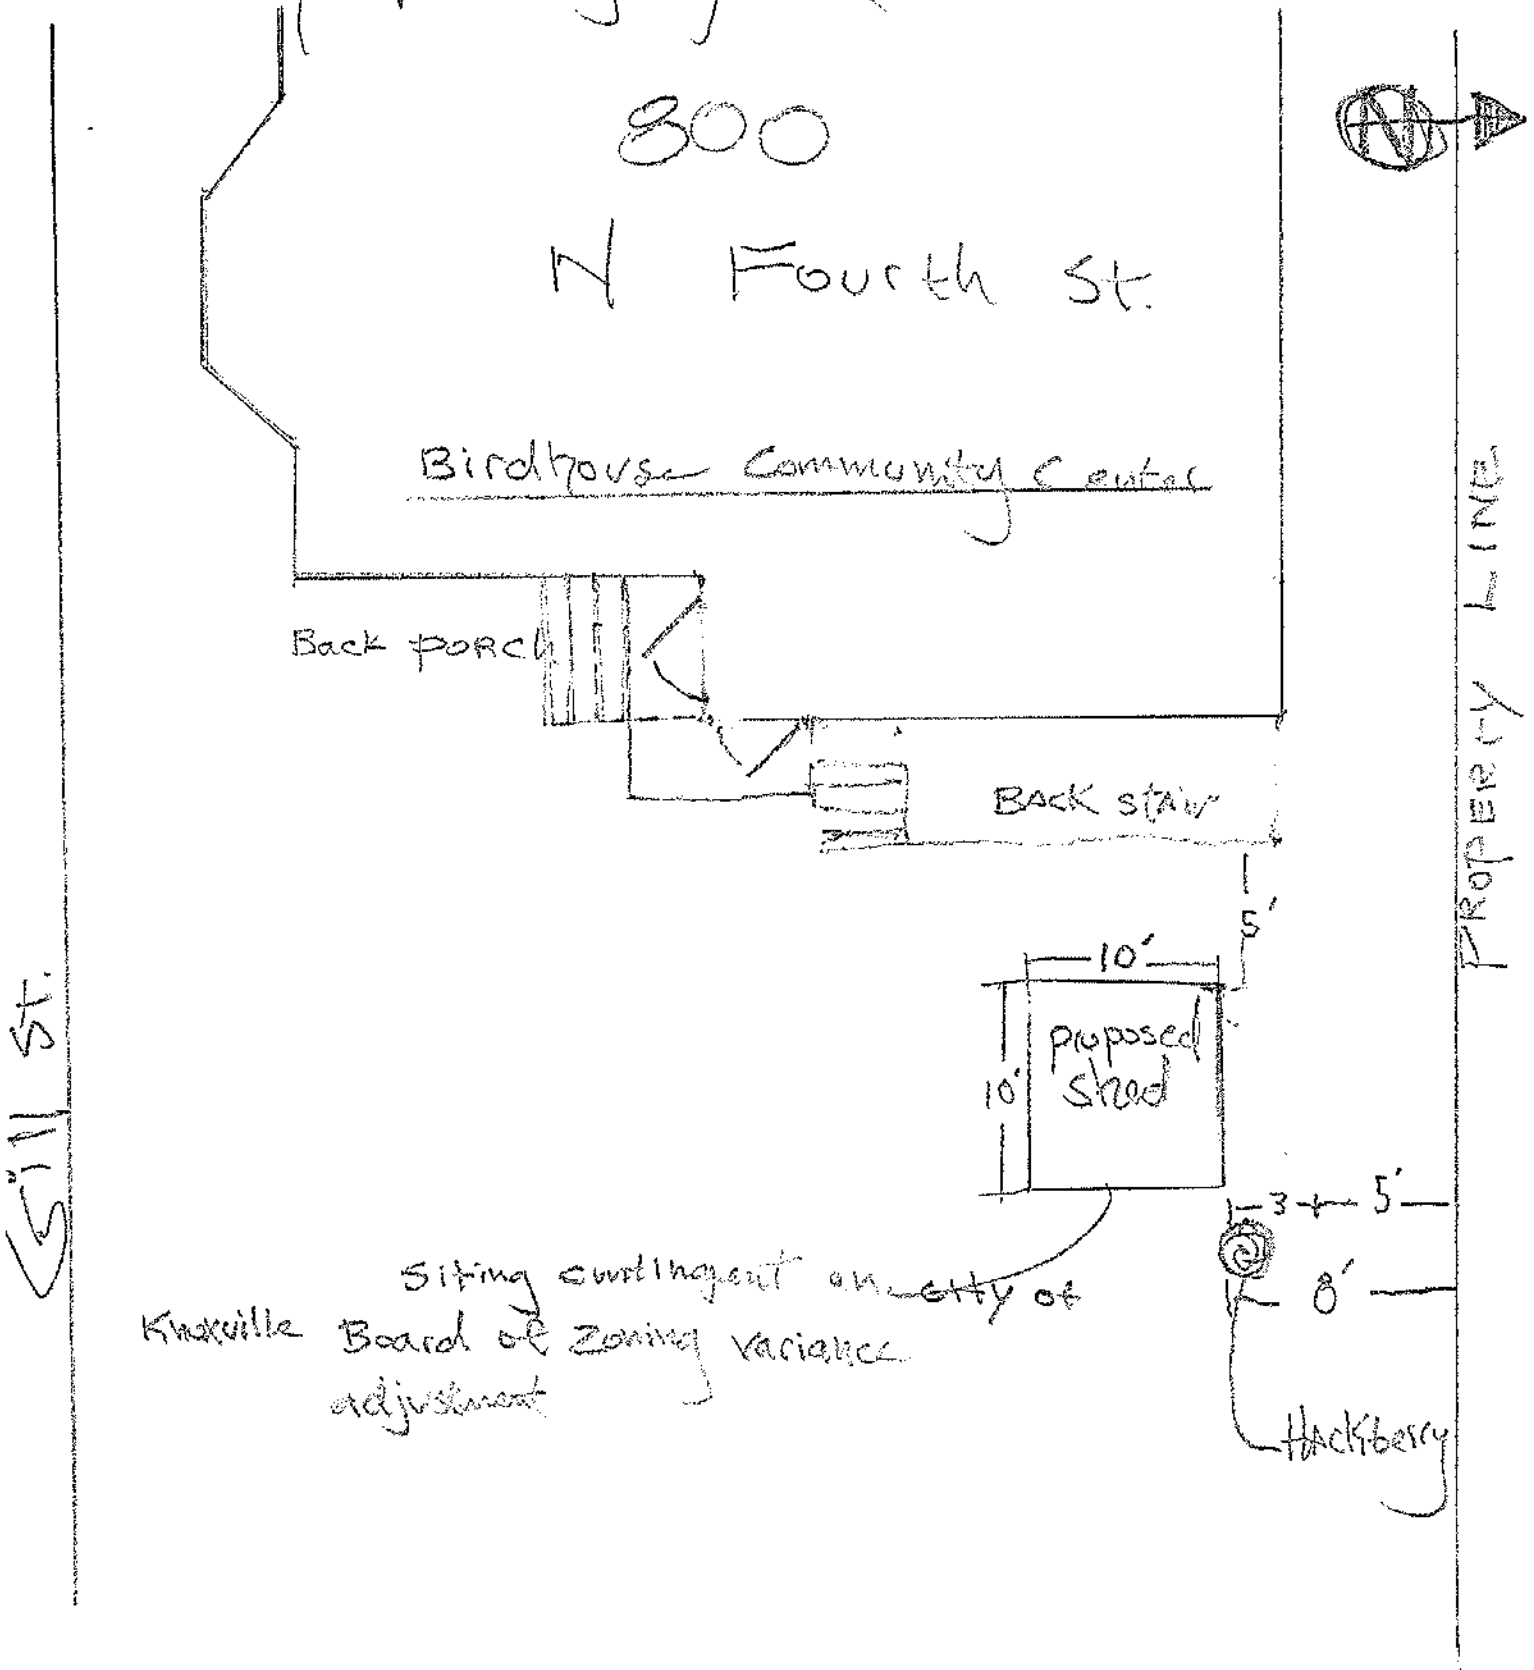 800
N Fourth St.
N
Birdhouse Community Center
PROPERTY LINE
Back PORCH
BACK stair
5'
10'
10'
proposed
shed
Gill St.
3 5'
8'
Siting contingent on city of
Knoxville Board of Zoning variance
adjustment
Hackberry